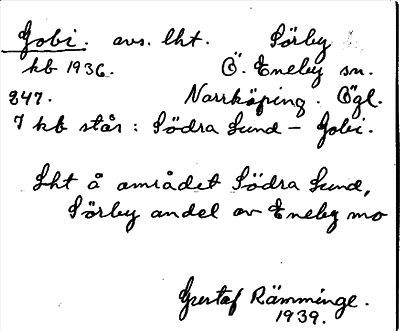 Gobi. avs. lht. Sörby
kb 1936. Ö. Eneby sn.
847. Norrköping. Ögl.
7 kb står: Södra Sund - Gobi.
Lht å området Södra Sund,
Sörby andel av Eneby mo
Gustaf Rämminge.
1939.